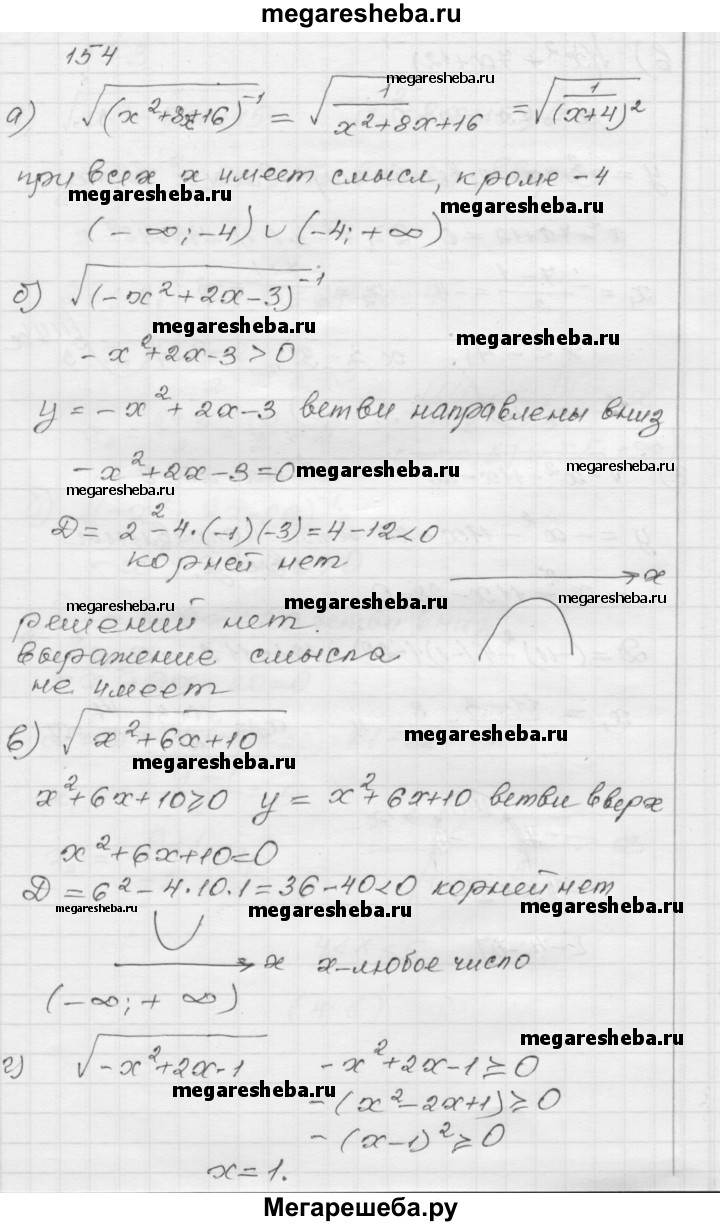 megaresheba.ru
154
megaresheba.ru
а) √(x²+8x+16)⁻¹ = √1/(x²+8x+16) = √1/(x+4)²
при всех x имеет смысл, кроме -4
megaresheba.ru
megaresheba.ru
(-∞; -4) ∪ (-4; +∞)
б) √(-x²+2x-3)⁻¹
megaresheba.ru
megaresheba.ru
-x²+2x-3>0
y = -x²+2x-3 ветви направлены вниз
-x²+2x-3=0
megaresheba.ru
megaresheba.ru
megaresheba.ru
D = 2²-4·(-1)(-3)=4-12<0
корней нет
x
megaresheba.ru
megaresheba.ru
megaresheba.ru
решений нет.
выражение смысла
не имеет
в) √x²+6x+10
megaresheba.ru
megaresheba.ru
x²+6x+10⩾0 y = x²+6x+10 ветви вверх
x²+6x+10=0
D = 6²-4·10·1=36-40<0 корней нет
megaresheba.ru
megaresheba.ru
megaresheba.ru
x x-любое число
(-∞; +∞)
г) √-x²+2x-1 -x²+2x-1⩾0
megaresheba.ru
megaresheba.ru
-(x²-2x+1)⩾0
-(x-1)²⩾0
x=1.
Мегарешеба.ру